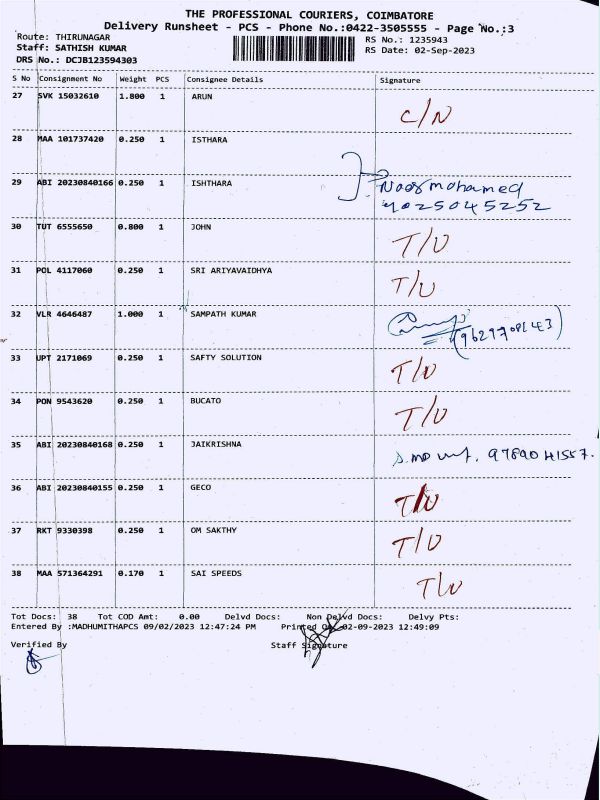 THE PROFESSIONAL COURIERS, COIMBATORE
Delivery Runsheet - PCS - Phone No.:0422-3505555 - Page No.:3
Route: THIRUNAGAR RS No.: 1235943
Staff: SATHISH KUMAR RS Date: 02-Sep-2023
DRS No.: DCJB123594303
S No Consignment No Weight PCS Consignee Details Signature
27 SVK 15032610 1.800 1 ARUN C/N
28 MAA 101737420 0.250 1 ISTHARA
29 ABI 20230840166 0.250 1 ISHTHARA Noormohamed
9025045252
30 TUT 6555650 0.800 1 JOHN T/U
31 POL 4117060 0.250 1 SRI ARIYAVAIDHYA T/U
32 VLR 4646487 1.000 1 SAMPATH KUMAR
33 UPT 2171069 0.250 1 SAFTY SOLUTION T/U
34 PON 9543620 0.250 1 BUCATO T/U
35 ABI 20230840168 0.250 1 JAIKRISHNA
36 ABI 20230840155 0.250 1 GECO T/U
37 RKT 9330398 0.250 1 OM SAKTHY T/U
38 MAA 571364291 0.170 1 SAI SPEEDS T/U
Tot Docs: 38 Tot COD Amt: 0.00 Delvd Docs: Non Delvd Docs: Delvy Pts:
Entered By :MADHUMITHAPCS 09/02/2023 12:47:24 PM Printed On 02-09-2023 12:49:09
Verified By Staff Signature